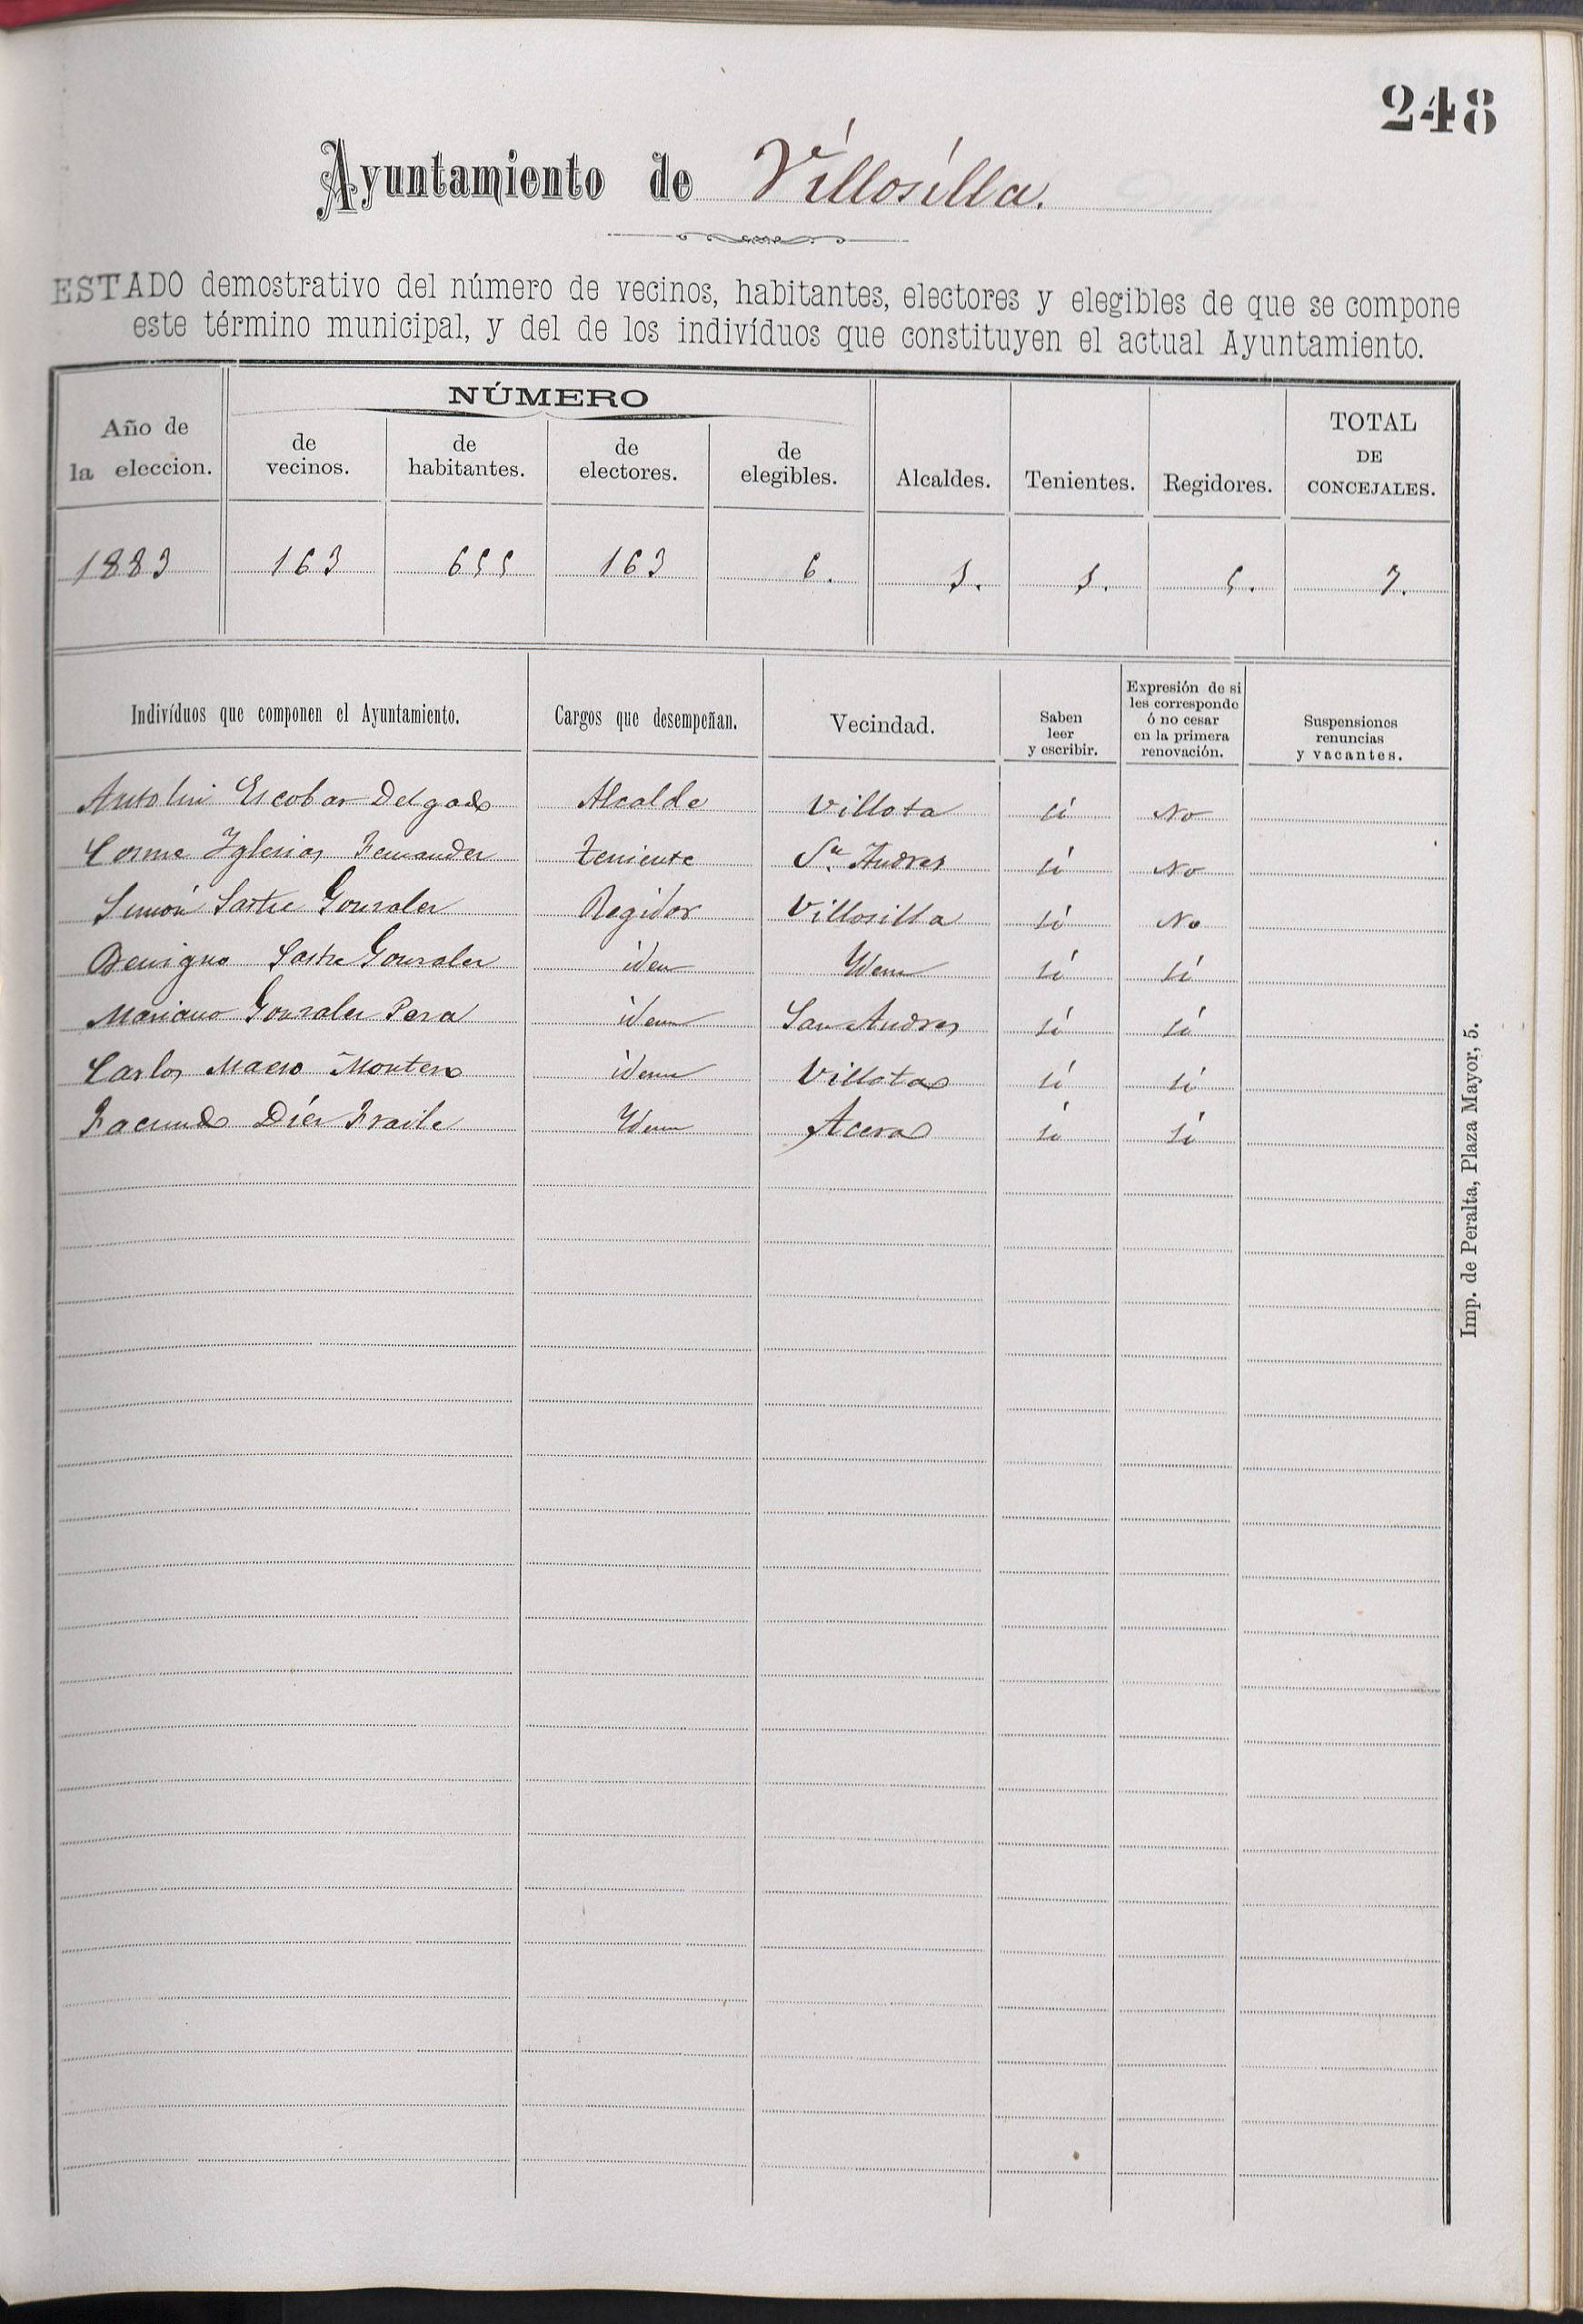 248
Ayuntamiento de Villosilla.
ESTADO demostrativo del número de vecinos, habitantes, electores y elegibles de que se compone
este término municipal, y del de los indivíduos que constituyen el actual Ayuntamiento.
Año de la eleccion. NÚMERO de vecinos. de habitantes. de electores. de elegibles. Alcaldes. Tenientes. Regidores. TOTAL DE CONCEJALES.
1883 163 655 163 6. 1. 1. 5. 7.
Indivíduos que componen el Ayuntamiento. Cargos que desempeñan. Vecindad. Saben leer y escribir. Expresión de si les corresponde ó no cesar en la primera renovación. Suspensiones renuncias y vacantes.
Antolin Escobar Delgado Alcalde Villota sí No
Cosme Yglesias Fernandez teniente Sn Andres sí No
Simón Sastre Gonzalez Regidor Villosilla sí No
Benigno Sastre Gonzalez iden Ydem sí sí
Mariano Gonzalez Poza idem San Andres sí sí
Carlos Maeso Montero idem Villota sí sí
Facundo Díez Fraile Ydem Acera sí sí
Imp. de Peralta, Plaza Mayor, 5.